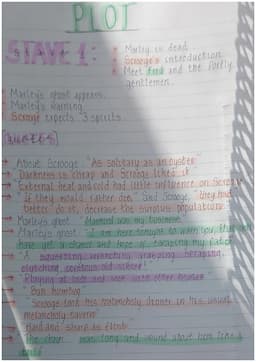 PLOT
STAVE 1:
Marley is dead
Scrooge's introduction
Meet Fred and the Portly
gentlemen.
Marley's ghost appears.
Marley's warning
Scrooge expects 3 spirits
[QUOTES]
About Scrooge "As solitary as an oyster"
Darkness is cheap and Scrooge liked it
External heat and cold had little influence on Scrooge
"If they would rather die," said Scrooge, "they had
better do it, decrease the surplus population"
Marley's ghost "Mankind was my business"
Marley's ghost "I am here tonight to warn you, that you
have yet a chance and hope of escaping my fate"
"A squeezing, wrenching, grasping, scraping,
clutching, covetous old sinner!"
"Bah humbug"
"Scrooge took his melancholy dinner in his usual
melancholy tavern"
Hard and sharp as flint
The chain was long and wound about him like a